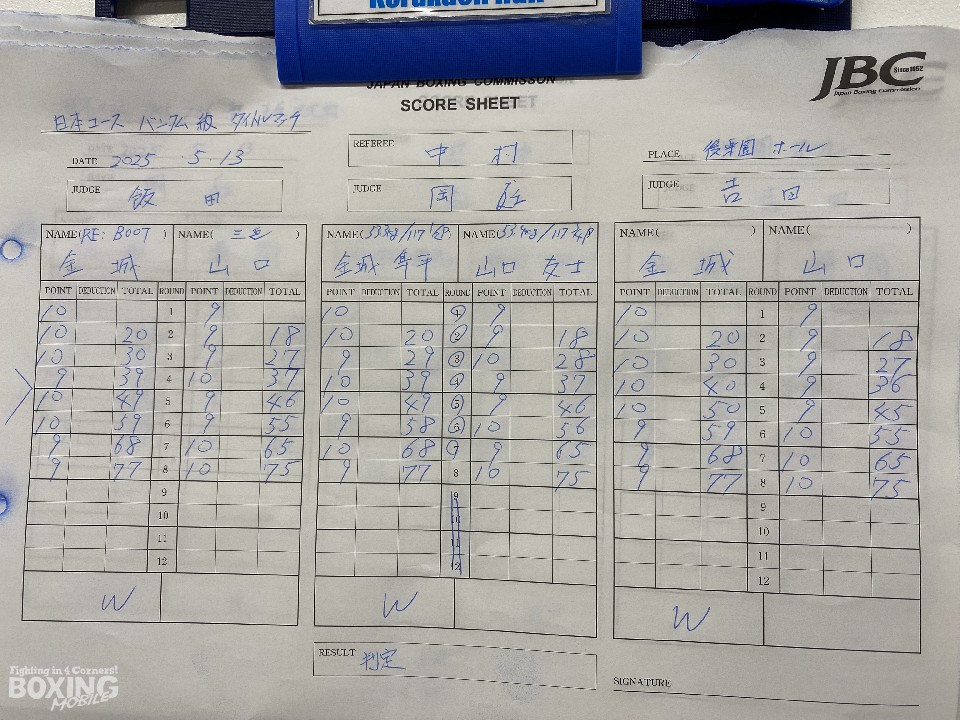 Korakuen Hall
JAPAN BOXING COMMISSON
SCORE SHEET
JBC Since 1952
Japan Boxing Commission
日本ユース バンタム級 タイトルマッチ
DATE 2025 . 5 . 13
REFEREE 中村
PLACE 後楽園ホール
JUDGE 飯田
JUDGE 岡庭
JUDGE 吉田
NAME(RE: BOOT) NAME(三迫)
金城 山口
POINT DEDUCTION TOTAL ROUND POINT DEDUCTION TOTAL
10 1 9
10 20 2 9 18
10 30 3 9 27
9 39 4 10 37
10 49 5 9 46
10 59 6 9 55
9 68 7 10 65
9 77 8 10 75
9
10
11
12
W
NAME( NAME(
金城 隼平 山口 友士
POINT DEDUCTION TOTAL ROUND POINT DEDUCTION TOTAL
10 1 9
10 20 2 9 18
9 29 3 10 28
10 39 4 9 37
10 49 5 9 46
9 58 6 10 56
10 68 7 9 65
9 77 8 10 75
9
10
11
12
W
NAME( ) NAME( )
金城 山口
POINT DEDUCTION TOTAL ROUND POINT DEDUCTION TOTAL
10 1 9
10 20 2 9 18
10 30 3 9 27
10 40 4 9 36
10 50 5 9 45
9 59 6 10 55
9 68 7 10 65
9 77 8 10 75
9
10
11
12
W
RESULT 判定
SIGNATURE
Fighting in 4 Corners!
BOXING
MOBILE